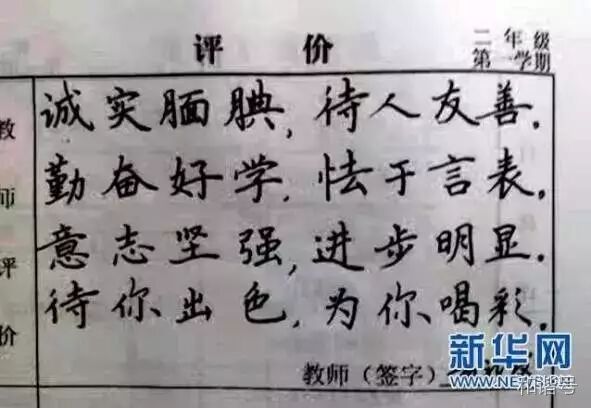 评 价
二 年 级
第一学期
教师评价
诚实腼腆,待人友善.
勤奋好学,怯于言表.
意志坚强,进步明显.
待你出色,为你喝彩.
教师（签字）
新华网
WWW.NEWS.CN